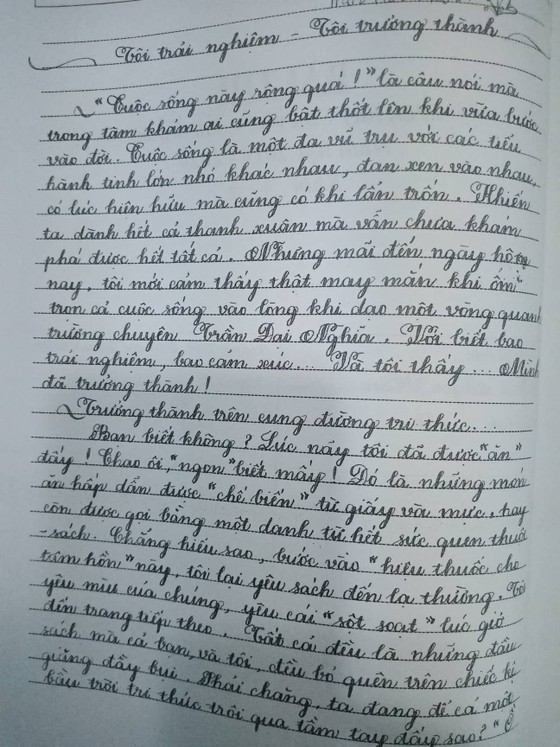 Tôi trải nghiệm - Tôi trưởng thành
"Cuộc sống này rộng quá!" là câu nói mà
trong tâm khảm ai cũng bật thốt lên khi vừa bước
vào đời. Cuộc sống là một đa vũ trụ với các tiểu
hành tinh lớn nhỏ khác nhau, đan xen vào nhau,
có lúc hiện hữu mà cũng có khi lẩn trốn. Khiến
ta dành hết cả thanh xuân mà vẫn chưa khám
phá được hết tất cả. Nhưng mãi đến ngày hôm
nay, tôi mới cảm thấy thật may mắn khi ôm
trọn cả cuộc sống vào lòng khi dạo một vòng quanh
trường chuyên Trần Đại Nghĩa. Với biết bao
trải nghiệm, bao cảm xúc... Và tôi thấy... Mình
đã trưởng thành!
Trưởng thành trên cung đường tri thức...
Bạn biết không? Lúc nãy tôi đã được "ăn"
đấy! Chao ôi, "ngon" biết mấy! Đó là những món
ăn hấp dẫn được "chế biến" từ giấy và mực, hay
còn được gọi bằng một danh từ hết sức quen thuộc
-sách. Chẳng hiểu sao, bước vào "hiệu thuốc cho
tâm hồn" này, tôi lại yêu sách đến lạ thường. Tôi
yêu mùi của chúng, yêu cái "sột soạt" lúc giở
đến trang tiếp theo. Tất cả đều là những đầu
sách mà cả bạn, và tôi, đều bỏ quên trên chiếc kệ
giăng đầy bụi. Phải chăng, ta đang để cả một
bầu trời tri thức trôi qua tầm tay đấy sao? "Ồ